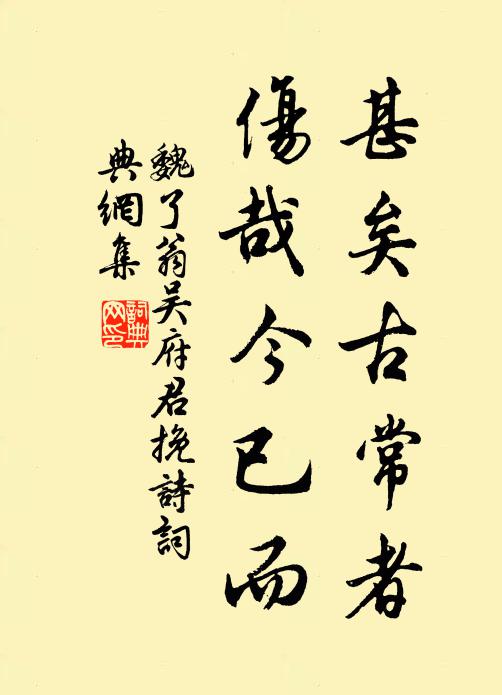 甚矣古常者
傷哉今已而
魏了翁吴府君挽詩詞
典網集
詞典
网印